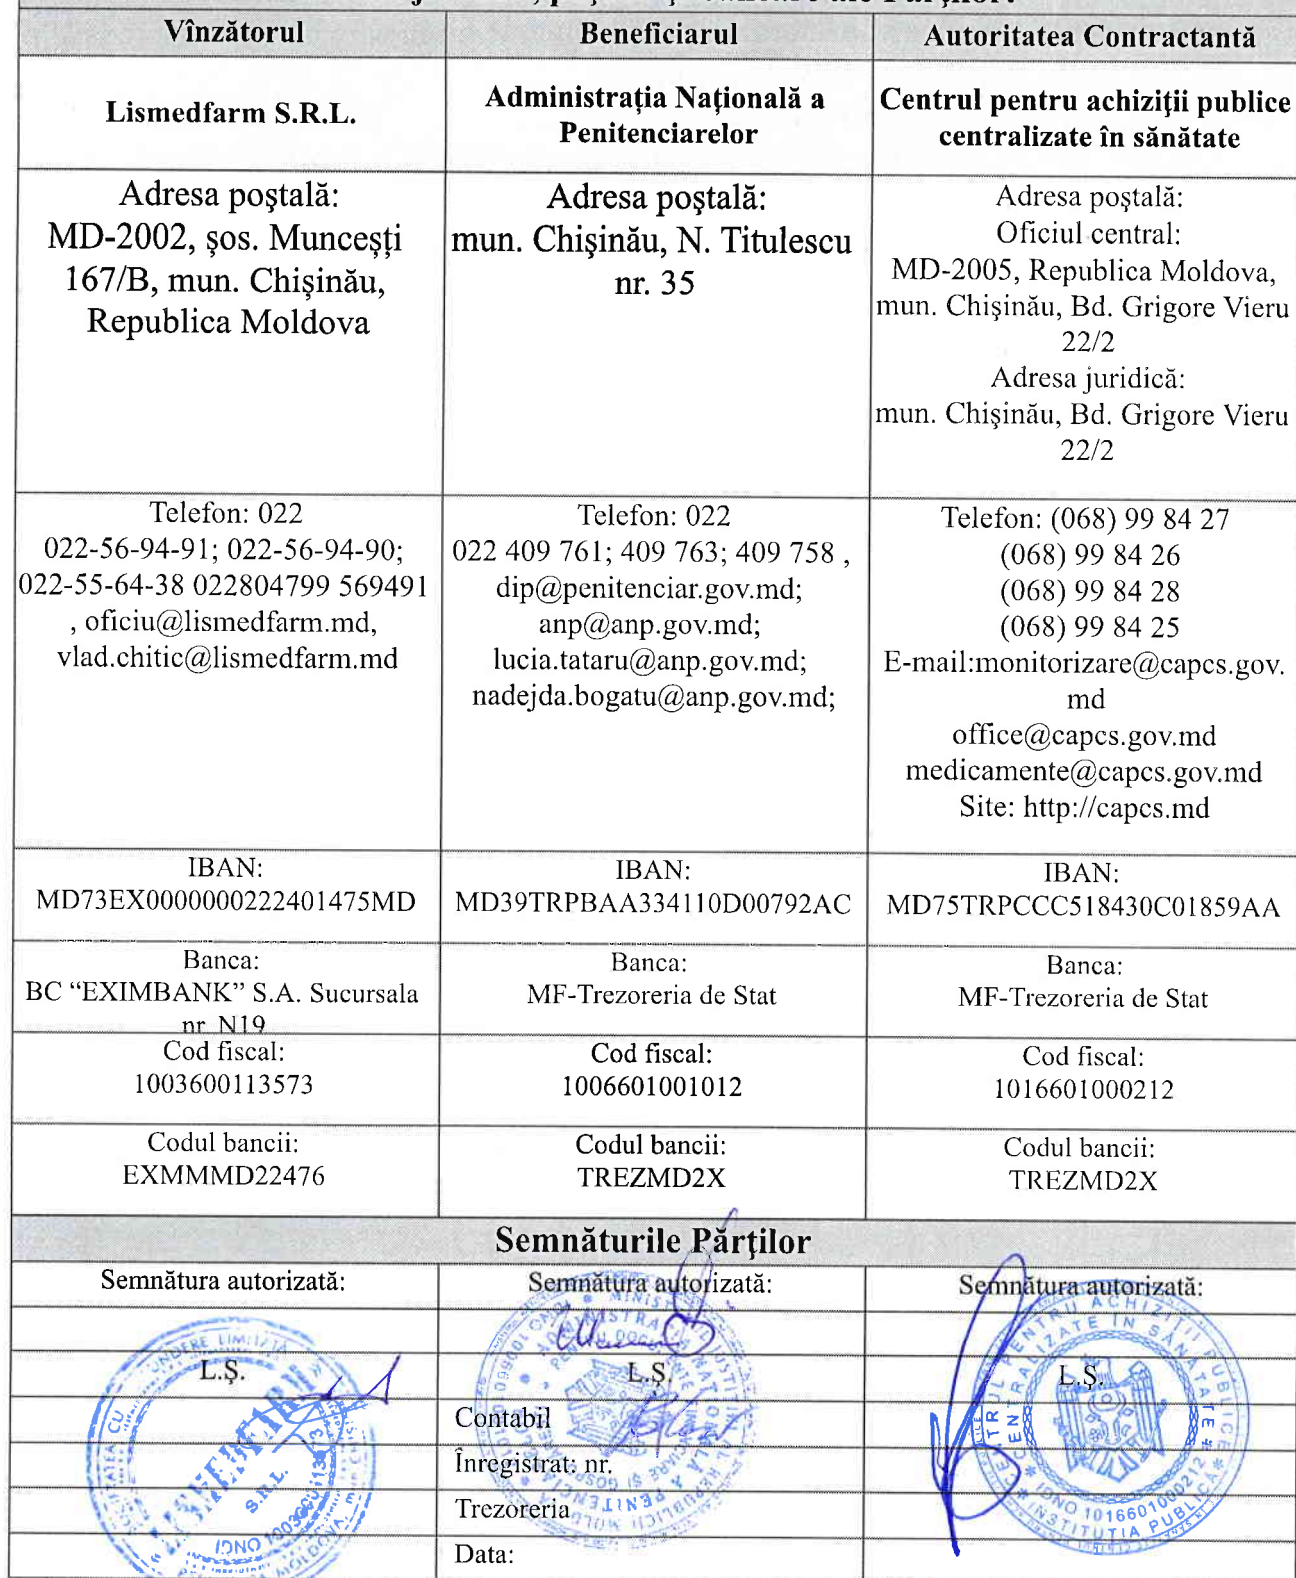 Vînzătorul
Beneficiarul
Autoritatea Contractantă
Lismedfarm S.R.L.
Administrația Națională a
Penitenciarelor
Centrul pentru achiziţii publice
centralizate în sănătate
Adresa poştală:
MD-2002, șos. Muncești
167/B, mun. Chișinău,
Republica Moldova
Adresa poştală:
mun. Chişinău, N. Titulescu
nr. 35
Adresa poştală:
Oficiul central:
MD-2005, Republica Moldova,
mun. Chişinău, Bd. Grigore Vieru
22/2
Adresa juridică:
mun. Chişinău, Bd. Grigore Vieru
22/2
Telefon: 022
022-56-94-91; 022-56-94-90;
022-55-64-38 022804799 569491
, oficiu@lismedfarm.md,
vlad.chitic@lismedfarm.md
Telefon: 022
022 409 761; 409 763; 409 758 ,
dip@penitenciar.gov.md;
anp@anp.gov.md;
lucia.tataru@anp.gov.md;
nadejda.bogatu@anp.gov.md;
Telefon: (068) 99 84 27
(068) 99 84 26
(068) 99 84 28
(068) 99 84 25
E-mail:monitorizare@capcs.gov.
md
office@capcs.gov.md
medicamente@capcs.gov.md
Site: http://capcs.md
IBAN:
MD73EX0000000222401475MD
IBAN:
MD39TRPBAA334110D00792AC
IBAN:
MD75TRPCCC518430C01859AA
Banca:
BC “EXIMBANK” S.A. Sucursala
nr N19
Banca:
MF-Trezoreria de Stat
Banca:
MF-Trezoreria de Stat
Cod fiscal:
1003600113573
Cod fiscal:
1006601001012
Cod fiscal:
1016601000212
Codul bancii:
EXMMMD22476
Codul bancii:
TREZMD2X
Codul bancii:
TREZMD2X
Semnăturile Părţilor
Semnătura autorizată:
Semnătura autorizată:
Semnătura autorizată:
L.Ş.
L.Ş.
L.Ş.
Contabil
Înregistrat: nr.
Trezoreria
Data:
S.R.L.
CENTRUL PENTRU ACHIZIŢII PUBLICE
CENTRALIZATE ÎN SĂNĂTATE
IDNO 1016601000212
INSTITUŢIA PUBLICĂ